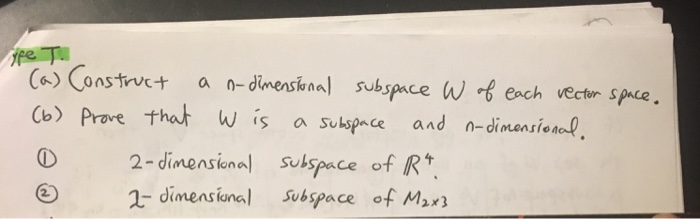 ype T.
(a) Construct a n-dimensional subspace W of each vector space.
(b) Prove that W is a subspace and n-dimensional.
① 2-dimensional subspace of ℝ⁴.
② 2-dimensional subspace of M₂ₓ₃